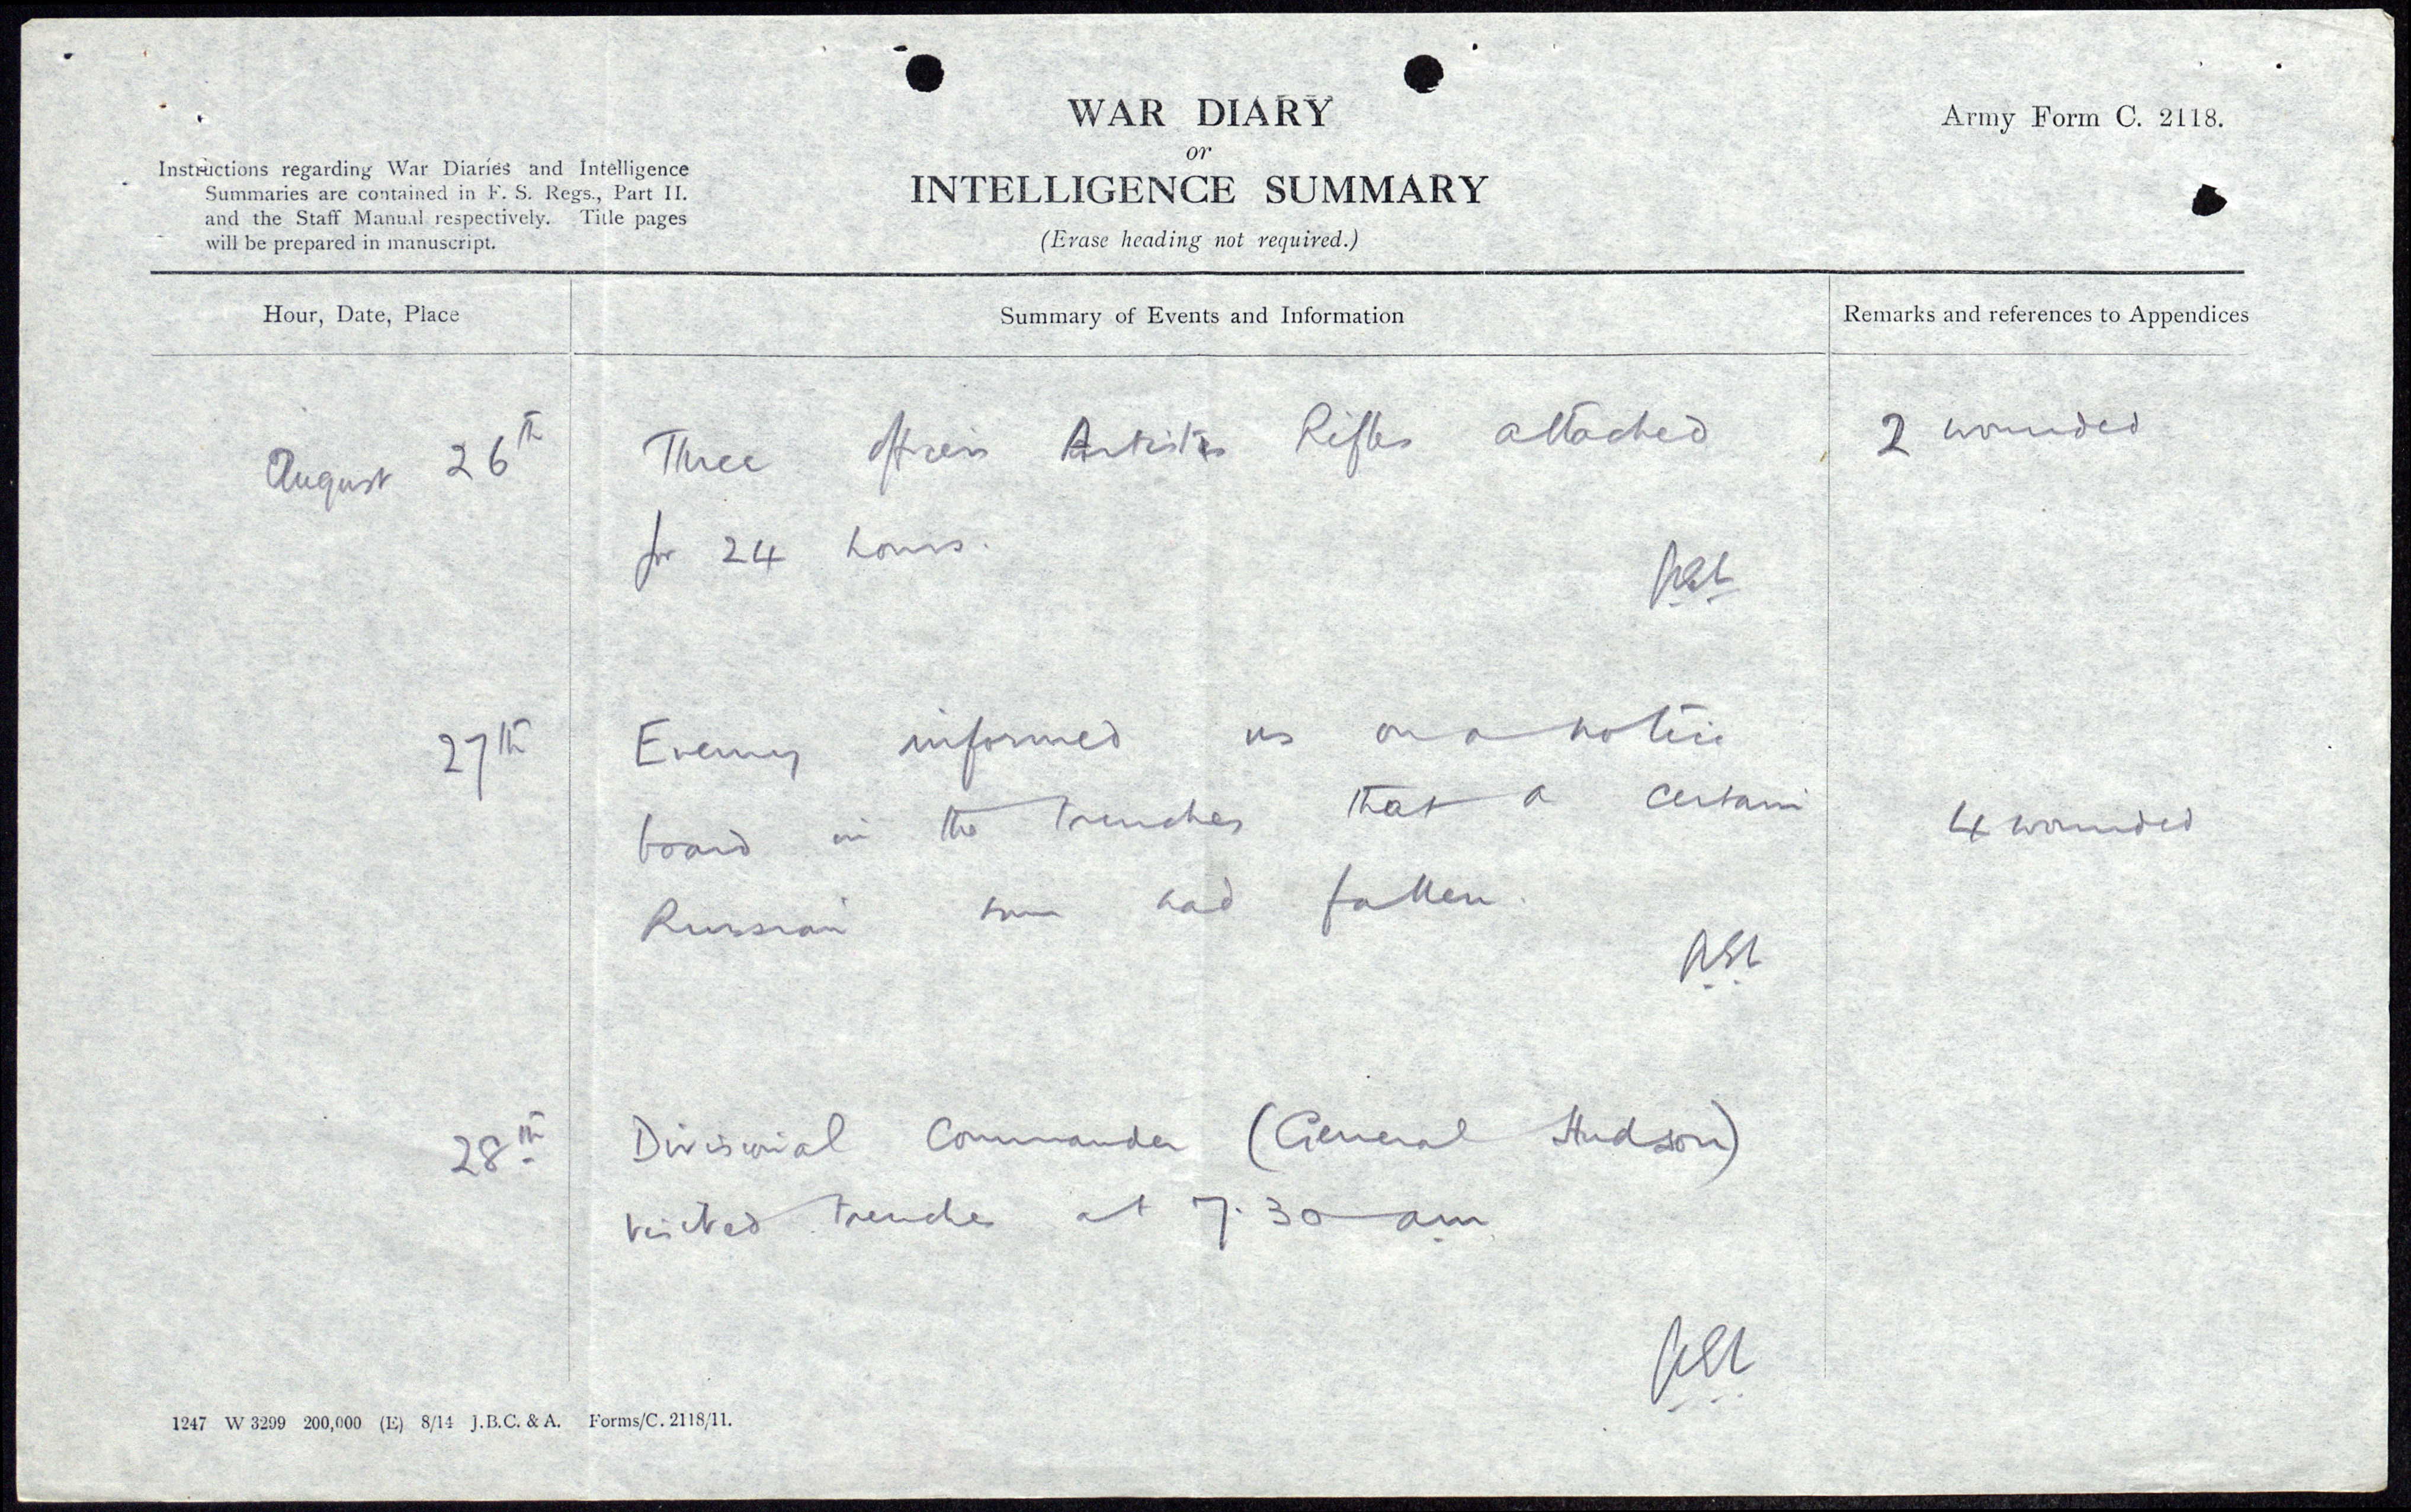 WAR DIARY
or
INTELLIGENCE SUMMARY
(Erase heading not required.)
Army Form C. 2118.
Instructions regarding War Diaries and Intelligence
Summaries are contained in F. S. Regs., Part II.
and the Staff Manual respectively. Title pages
will be prepared in manuscript.
Hour, Date, Place
Summary of Events and Information
Remarks and references to Appendices
August 26th
Three officers Artists Rifles attached
for 24 hours.
2 wounded
27th
Enemy informed us on a notice
board in the trenches that a certain
Russian had fallen.
4 wounded
28th
Divisional Commander (General Hudson)
visited trenches at 7.30 am
1247 W 3299 200,000 (E) 8/14 J.B.C. & A. Forms/C. 2118/11.